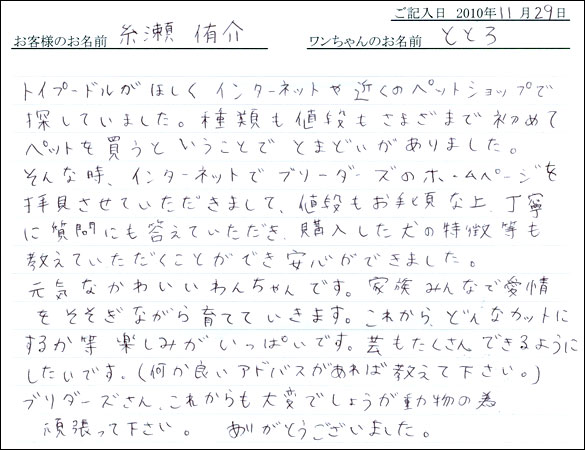 ご記入日 2010年11月29日
お客様のお名前 糸瀬 侑介 ワンちゃんのお名前 ととろ
トイプードルがほしく インターネットや近くのペットショップで
探していました。種類も値段もさまざまで初めて
ペットを買うということでとまどいがありました。
そんな時、インターネットでブリーダーズのホームページを
拝見させていただきまして、値段もお手頃な上、丁寧
に質問にも答えていただき、購入した犬の特徴等も
教えていただくことができ安心ができました。
元気なかわいいわんちゃんです。家族みんなで愛情
をそそぎながら育てていきます。これから、どんなカットに
するか等楽しみがいっぱいです。芸もたくさんできるように
したいです。(何か良いアドバスがあれば教えて下さい。)
ブリダーズさん、これからも大変でしょうが動物の為
頑張って下さい。 ありがとうございました。